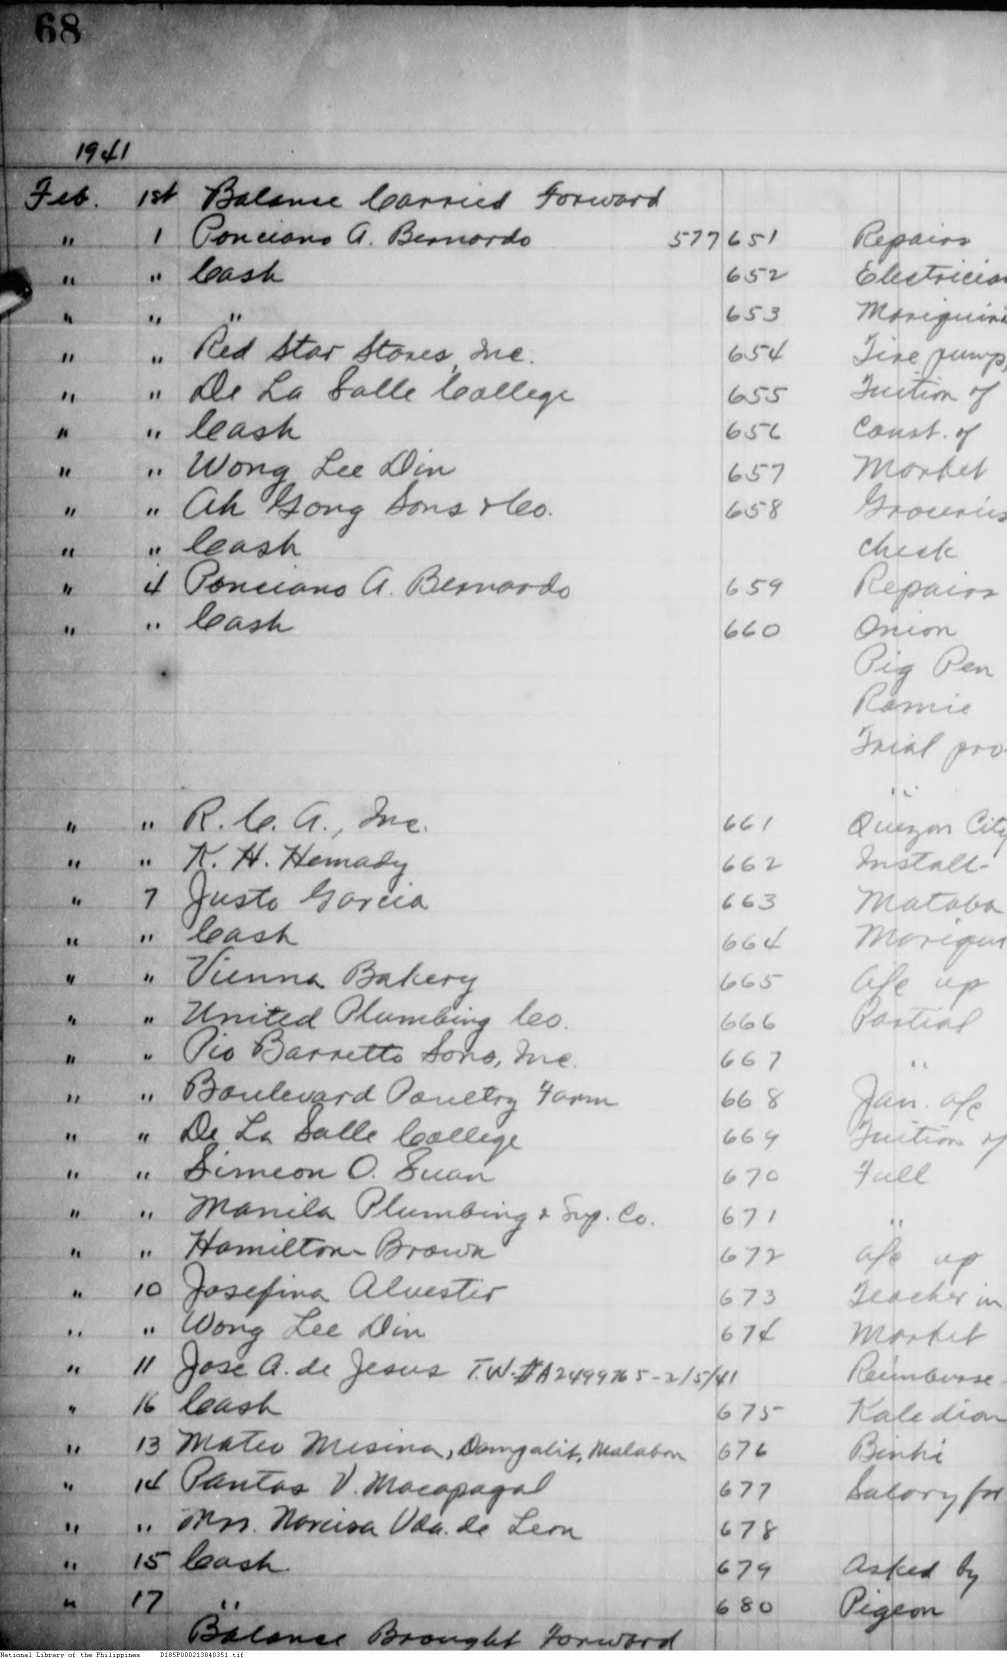 68
1941
Feb. 1st Balance Carried Forward
" 1 Ponciano A. Bernardo 577 651 Repairs
" " Cash 652 Electrician
" " " 653 Mariquina
" " Red Star Stores, Inc. 654 Tire pump,
" " De La Salle College 655 Tuition of
" " Cash 656 Const. of
" " Wong Lee Din 657 Market
" " Ah Gong Sons & Co. 658 Groceries
" " Cash check
" 4 Ponciano A. Bernardo 659 Repairs
" " Cash 660 Onion
Pig Pen
Ramie
Trial pro-
"
" " R. C. A., Inc. 661 Quezon City
" " K. H. Hemady 662 Install-
" 7 Justo Garcia 663 Mataba
" " Cash 664 Mariquin
" " Vienna Bakery 665 a/c up
" " United Plumbing Co. 666 Partial
" " Pio Barretto Sons, Inc. 667 "
" " Boulevard Poultry Farm 668 Jan. a/c
" " De La Salle College 669 Tuition of
" " Simeon O. Suan 670 Full
" " Manila Plumbing & Sup. Co. 671 "
" " Hamilton-Brown 672 a/c up
" 10 Josefina Alvester 673 Teacher in
" " Wong Lee Din 674 Market
" 11 Jose A. de Jesus T.W. #A2499765-2/5/41 Reimburse-
" 16 Cash 675 Kaledian
" 13 Mateo Misina, Damgalit, Malabon 676 Binhi
" 14 Pantas V. Macapagal 677 Salary for
" " Mrs. Narcisa Vda. de Leon 678
" 15 Cash 679 Asked by
" 17 " 680 Pigeon
Balance Brought Forward
National Library of the Philippines D185P000213040351.tif